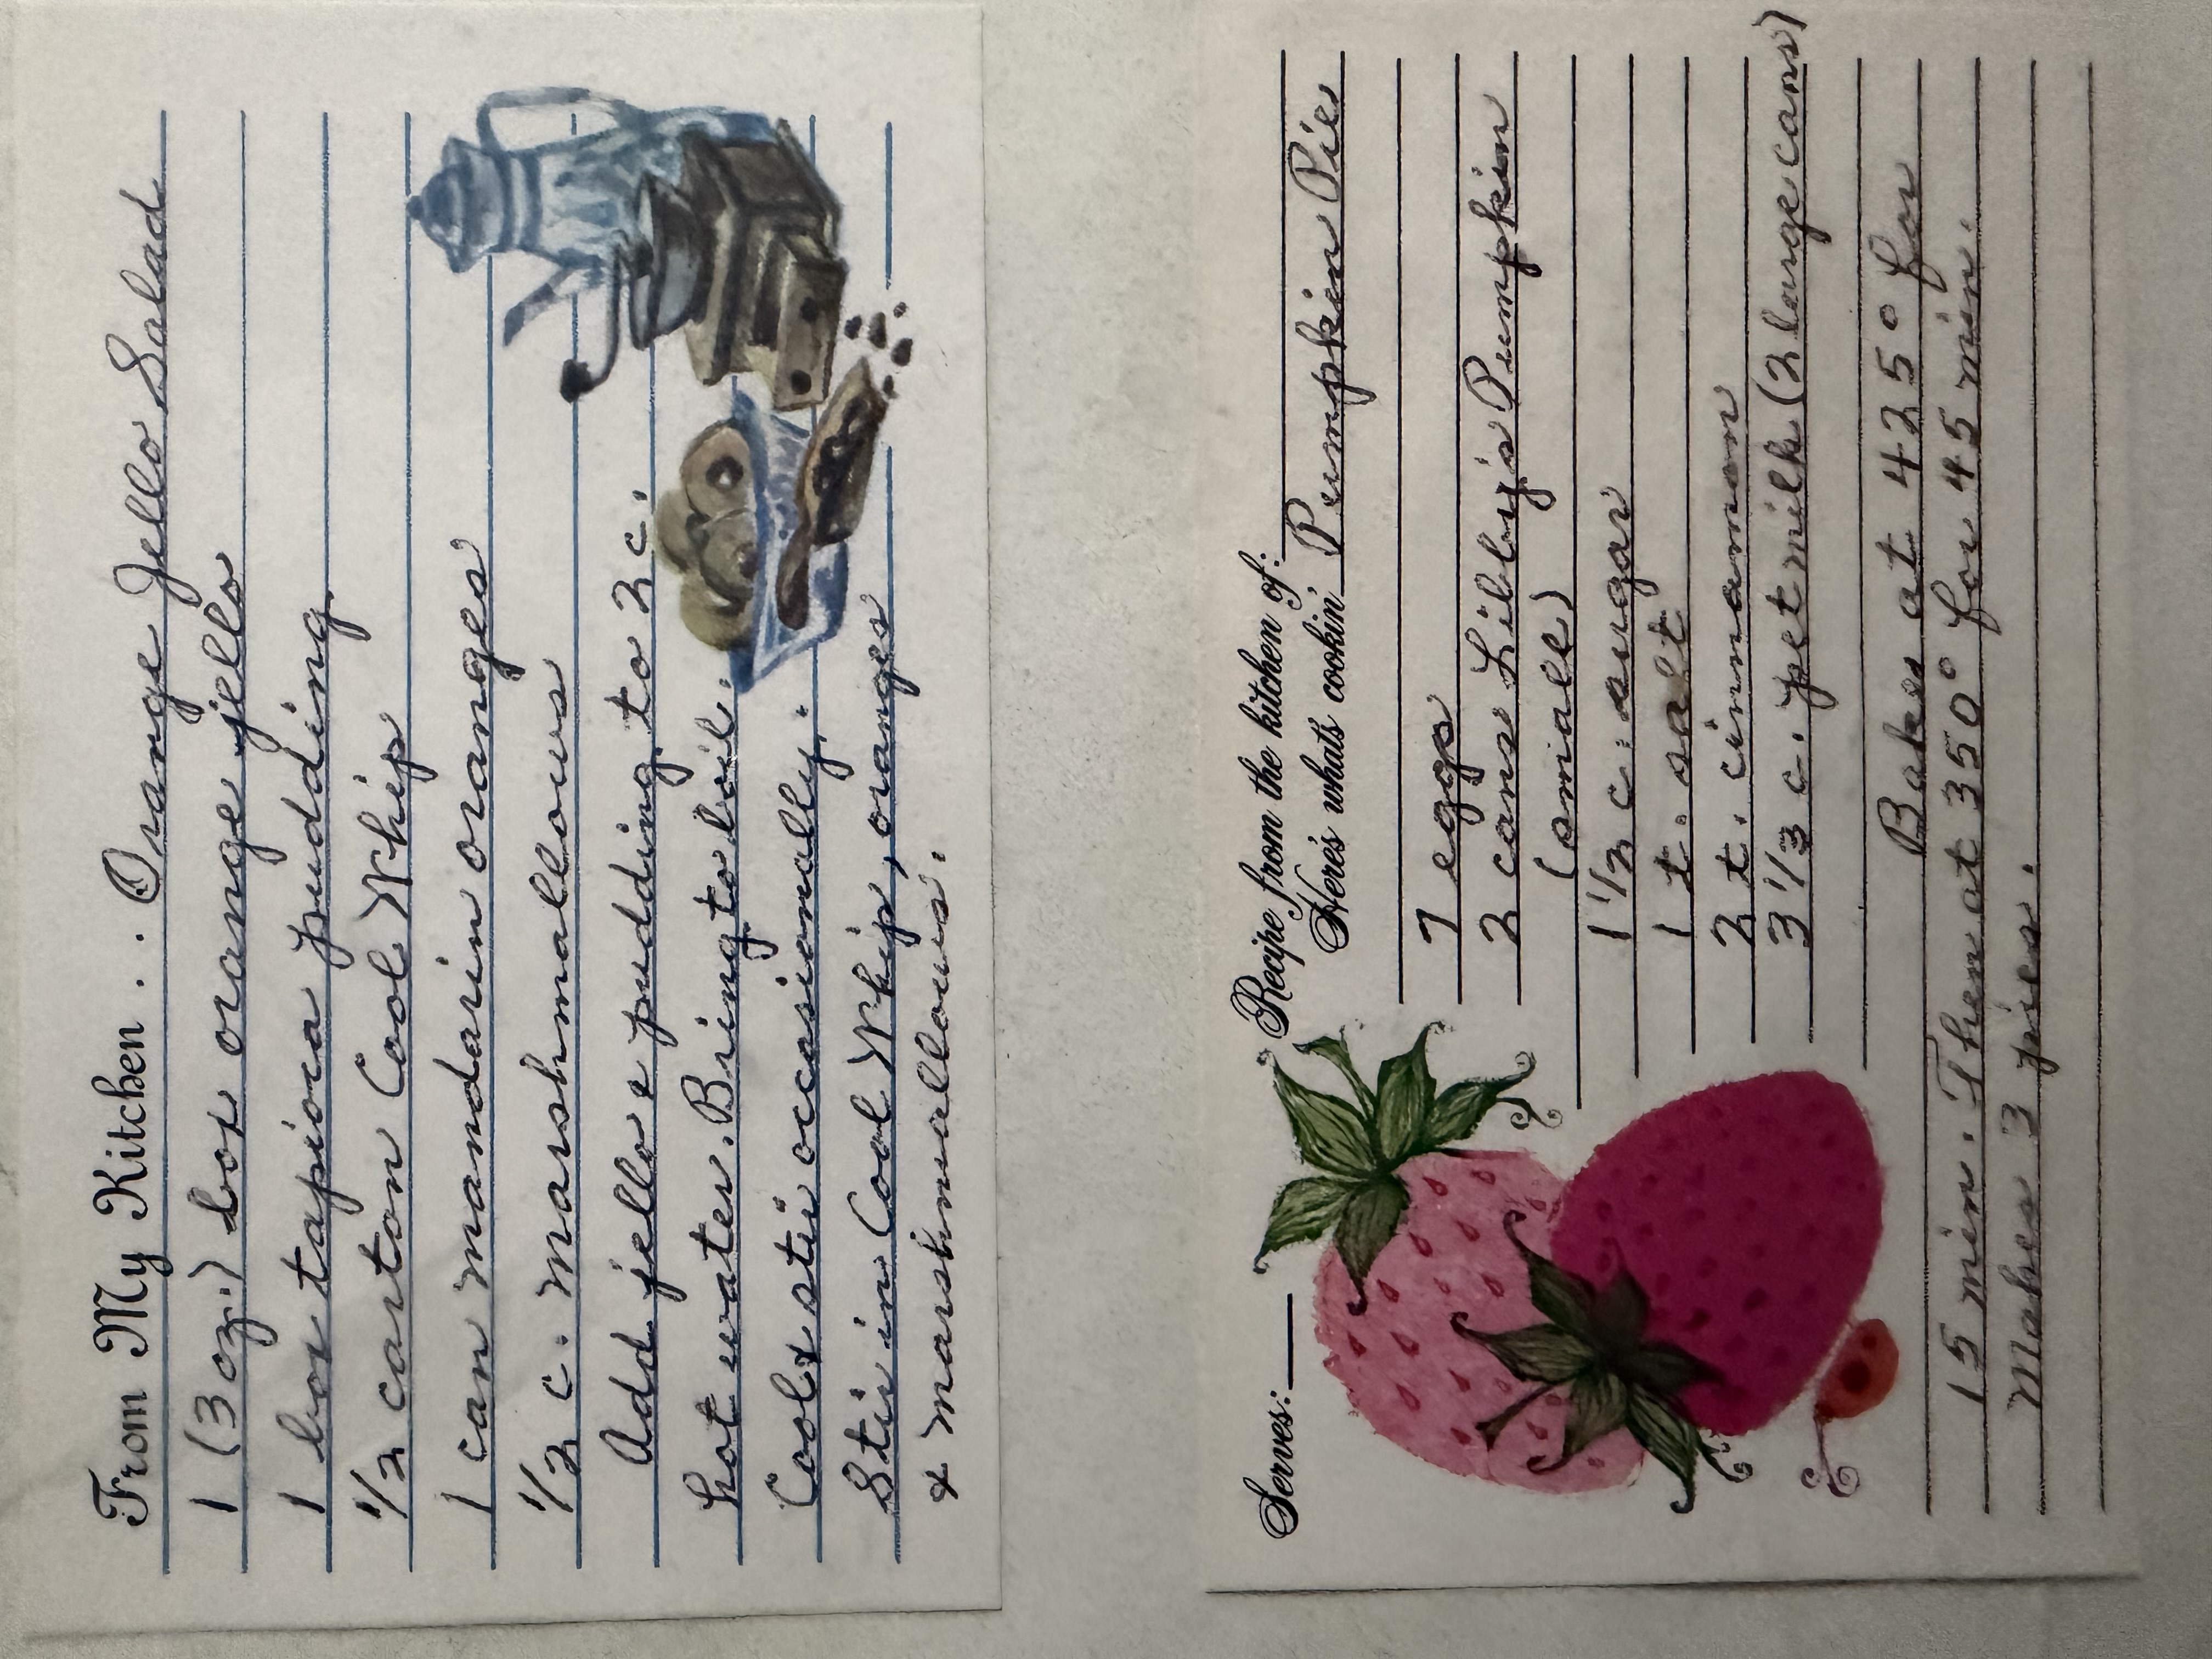 From My Kitchen . . . Orange Jello Salad
1 (3 oz.) box orange jello
1 box tapioca pudding
1/2 carton Cool Whip
1 can mandarin oranges
1/2 c. marshmallows
Add jello & pudding to 2 c.
hot water. Bring to boil.
Cool & stir occasionally.
Stir in Cool Whip, oranges
& marshmallows.
Serves:
Recipe from the kitchen of:
Here's whats cookin' Pumpkin Pie
7 eggs
2 cans Libby's Pumpkin
(small)
1 1/2 c. sugar
1 t. salt
2 t. cinnamon
3 1/3 c. pet milk (2 large cans)
Bake at 425° for
15 min. Then at 350° for 45 min.
Makes 3 pies.